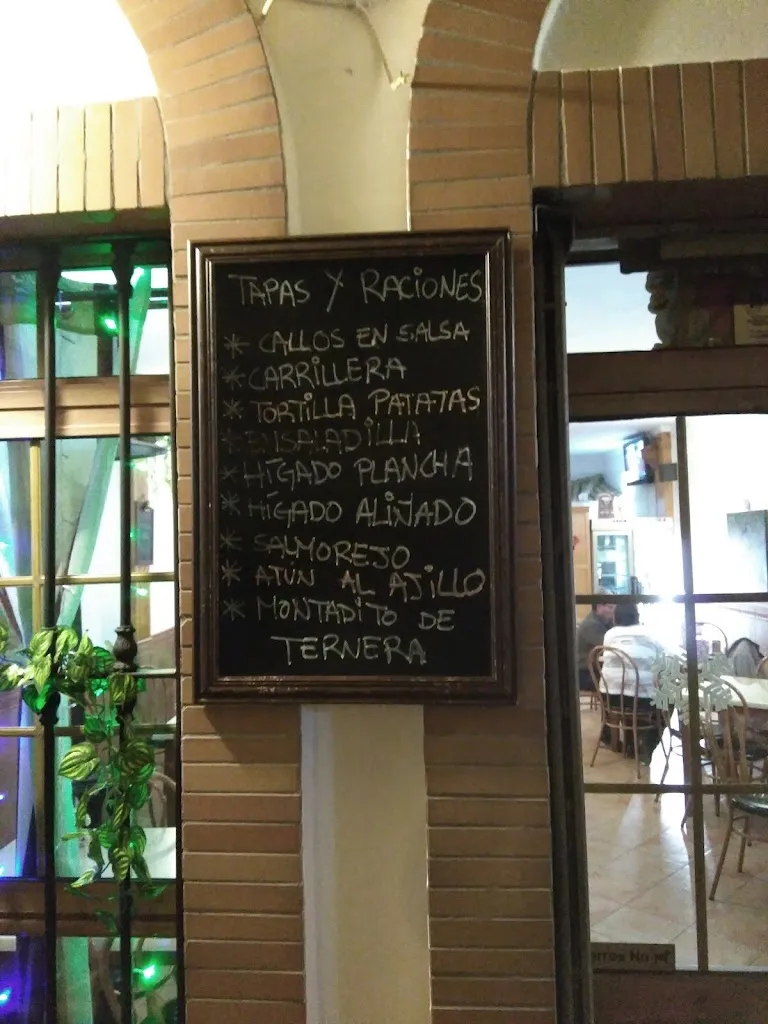 TAPAS Y RACIONES
* CALLOS EN SALSA
* CARRILLERA
* TORTILLA PATATAS
* ENSALADILLA
* HÍGADO PLANCHA
* HÍGADO ALIÑADO
* SALMOREJO
* ATUN AL AJILLO
* MONTADITO DE
TERNERA
No